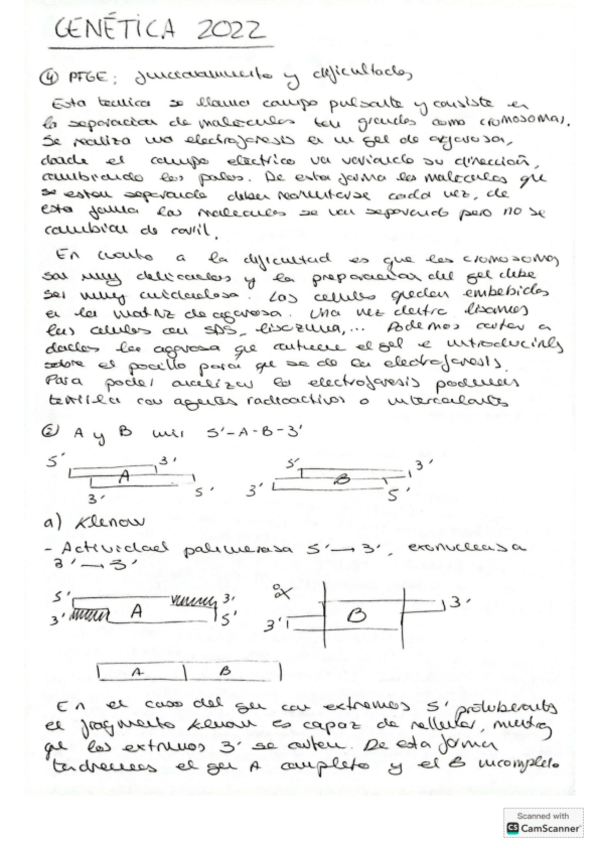 GENÉTICA 2022
④ PFGE: funcionamiento y dificultades
Esta tecnica se llama campo pulsante y consiste en
la separación de moleculas tan grandes como cromosomas.
Se realiza una electroforesis en un gel de agarosa,
donde el campo electrico va variando su dirección,
cambiando los polos. De esta forma las moleculas que
se estan separando deben reorientarse cada vez, de
esta forma las moleculas se van separando pero no se
cambian de carril.
En cuanto a la dificultad es que los cromosomas
son muy delicados y la preparacion del gel debe
ser muy cuidadosa. Las celulas quedan embebidas
en la matriz de agarosa. Una vez dentro lisamos
las celulas con SDS, lisozima,... Podemos cortar a
dados la agarosa que contiene el gel e introducirlas
sobre el pocillo para que se de la electroforesis.
Para poder analizar la electroforesis podemos
teñirla con agentes radioactivos o intercalantes
② A y B unir 5'-A-B-3'
5' 3' 5' 3'
A B
3' 5' 3' 5'
a) Klenow
- Actividad polimerasa 5'→3', exonucleasa
3'→5'
5' 3' 3'
3' A 5' 3' B
A B
En el caso del gen con extremos 5' protuberantes
el fragmento Klenow es capaz de rellenar, mientras
que los extremos 3' se cortan. De esta forma
tendremos el gen A completo y el B incompleto
Scanned with
CS CamScanner